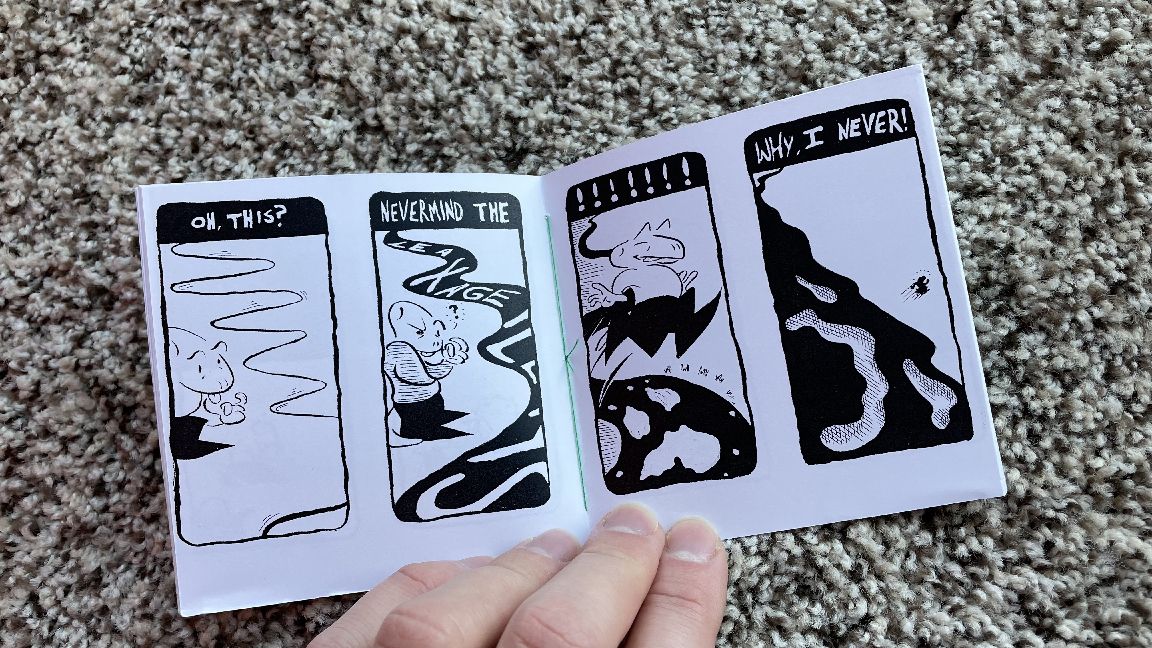 OH, THIS?
NEVERMIND THE
LEAKAGE
!!!!!!!
WHY, I NEVER!